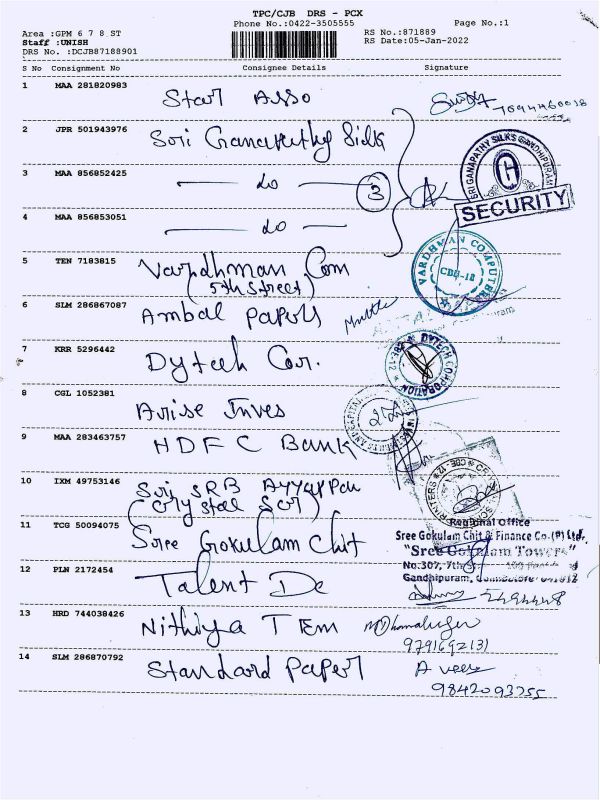 TPC/CJB DRS - PCX
Phone No.:0422-3505555
Page No.:1
Area :GPM 6 7 8 ST
Staff :UNISH
DRS No. :DCJB87188901
RS No.:871889
RS Date:05-Jan-2022
S No Consignment No Consignee Details Signature
1 MAA 281820983 Star Asso
2 JPR 501943976 Sori Ganapathy Silk
3 MAA 856852425 — do — 3
4 MAA 856853051 — do —
SRI GANAPATHY SILKS GANDHIPURAM
SECURITY
5 TEN 7183815 Vardhman Com
(5th Street)
VARDHMAN COMPUTERS
CBE-12
6 SLM 286867087 Ambal Papers
7 KRR 5296442 Dytech Cor.
DYTECH CORPORATION
CBE-12
8 CGL 1052381 Arise Inves
9 MAA 283463757 HDFC Bank
10 IXM 49753146 Sori SRB Ayyappan
(Crystal Scr)
CBE-12
11 TCG 50094075 Sree Gokulam Chit
Regional Office
Sree Gokulam Chit & Finance Co.(P) Ltd.
"Sree Gokulam Towers"
No:307, 7th St.
Gandhipuram, Coimbatore 641012
12 PLN 2172454 Talent De
13 HRD 744038426 Nithiya Tem
9791692131
14 SLM 286870792 Standard Paper
A veer
9842093755